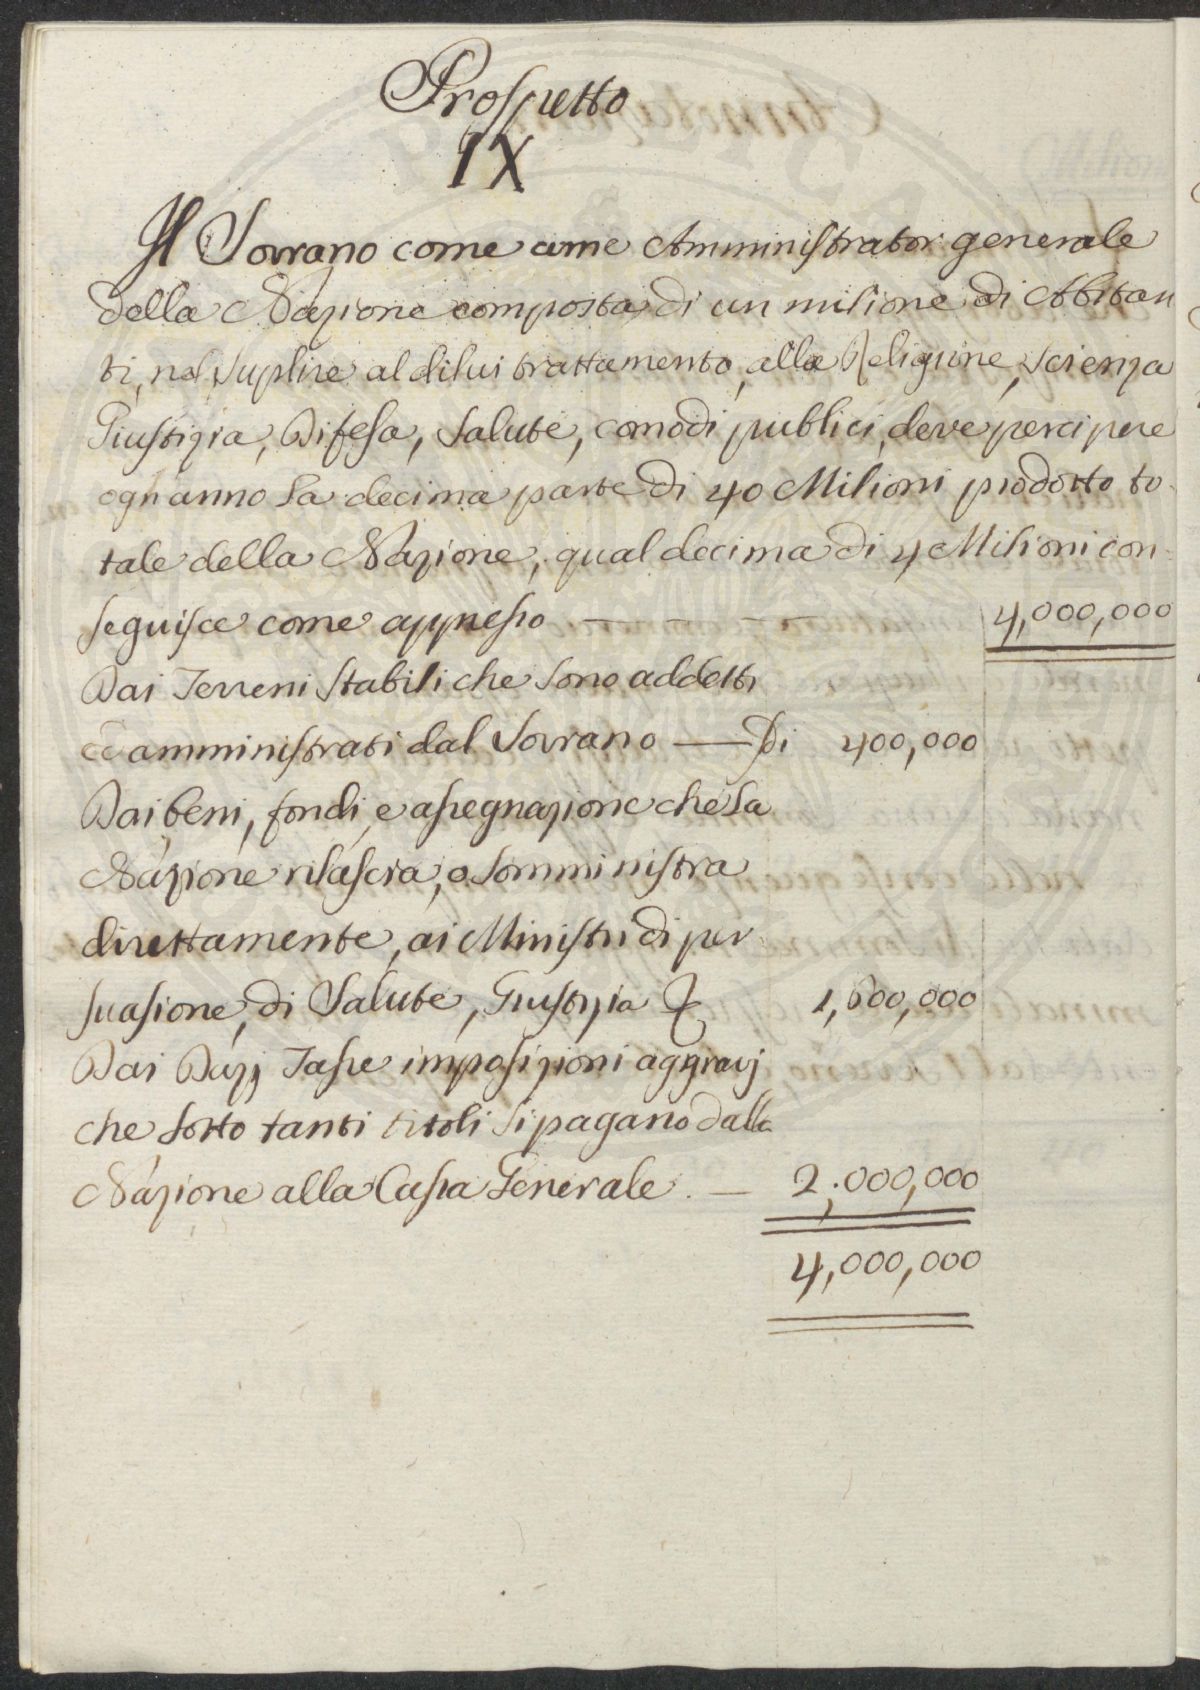 Prospetto
IX
Il Sovrano come ame Amministrator generale
della Nazione composta di un milione di Abitan
ti, nel suplire al dilui trattamento, alla Religione, scienza
Giustizia, Difesa, Salute, comodi publici, deve percipere
ogn'anno la decima parte di 40 Milioni prodotto to-
tale della Nazione, qual decima di 4 Milioni con-
seguisce come appresso — — — 4,000,000
Dai Terreni stabili che sono addetti
ed amministrati dal Sovrano — Di 400,000
Dai beni, fondi, e assegnazione che la
Nazione rilascia, o somministra
direttamente, ai Ministri di per
suasione, di Salute, Giustizia & 1,600,000
Dai Dazj Tasse imposizioni aggravj
che sotto tanti titoli si pagano dalla
Nazione alla Cassa Generale. — 2,000,000
4,000,000